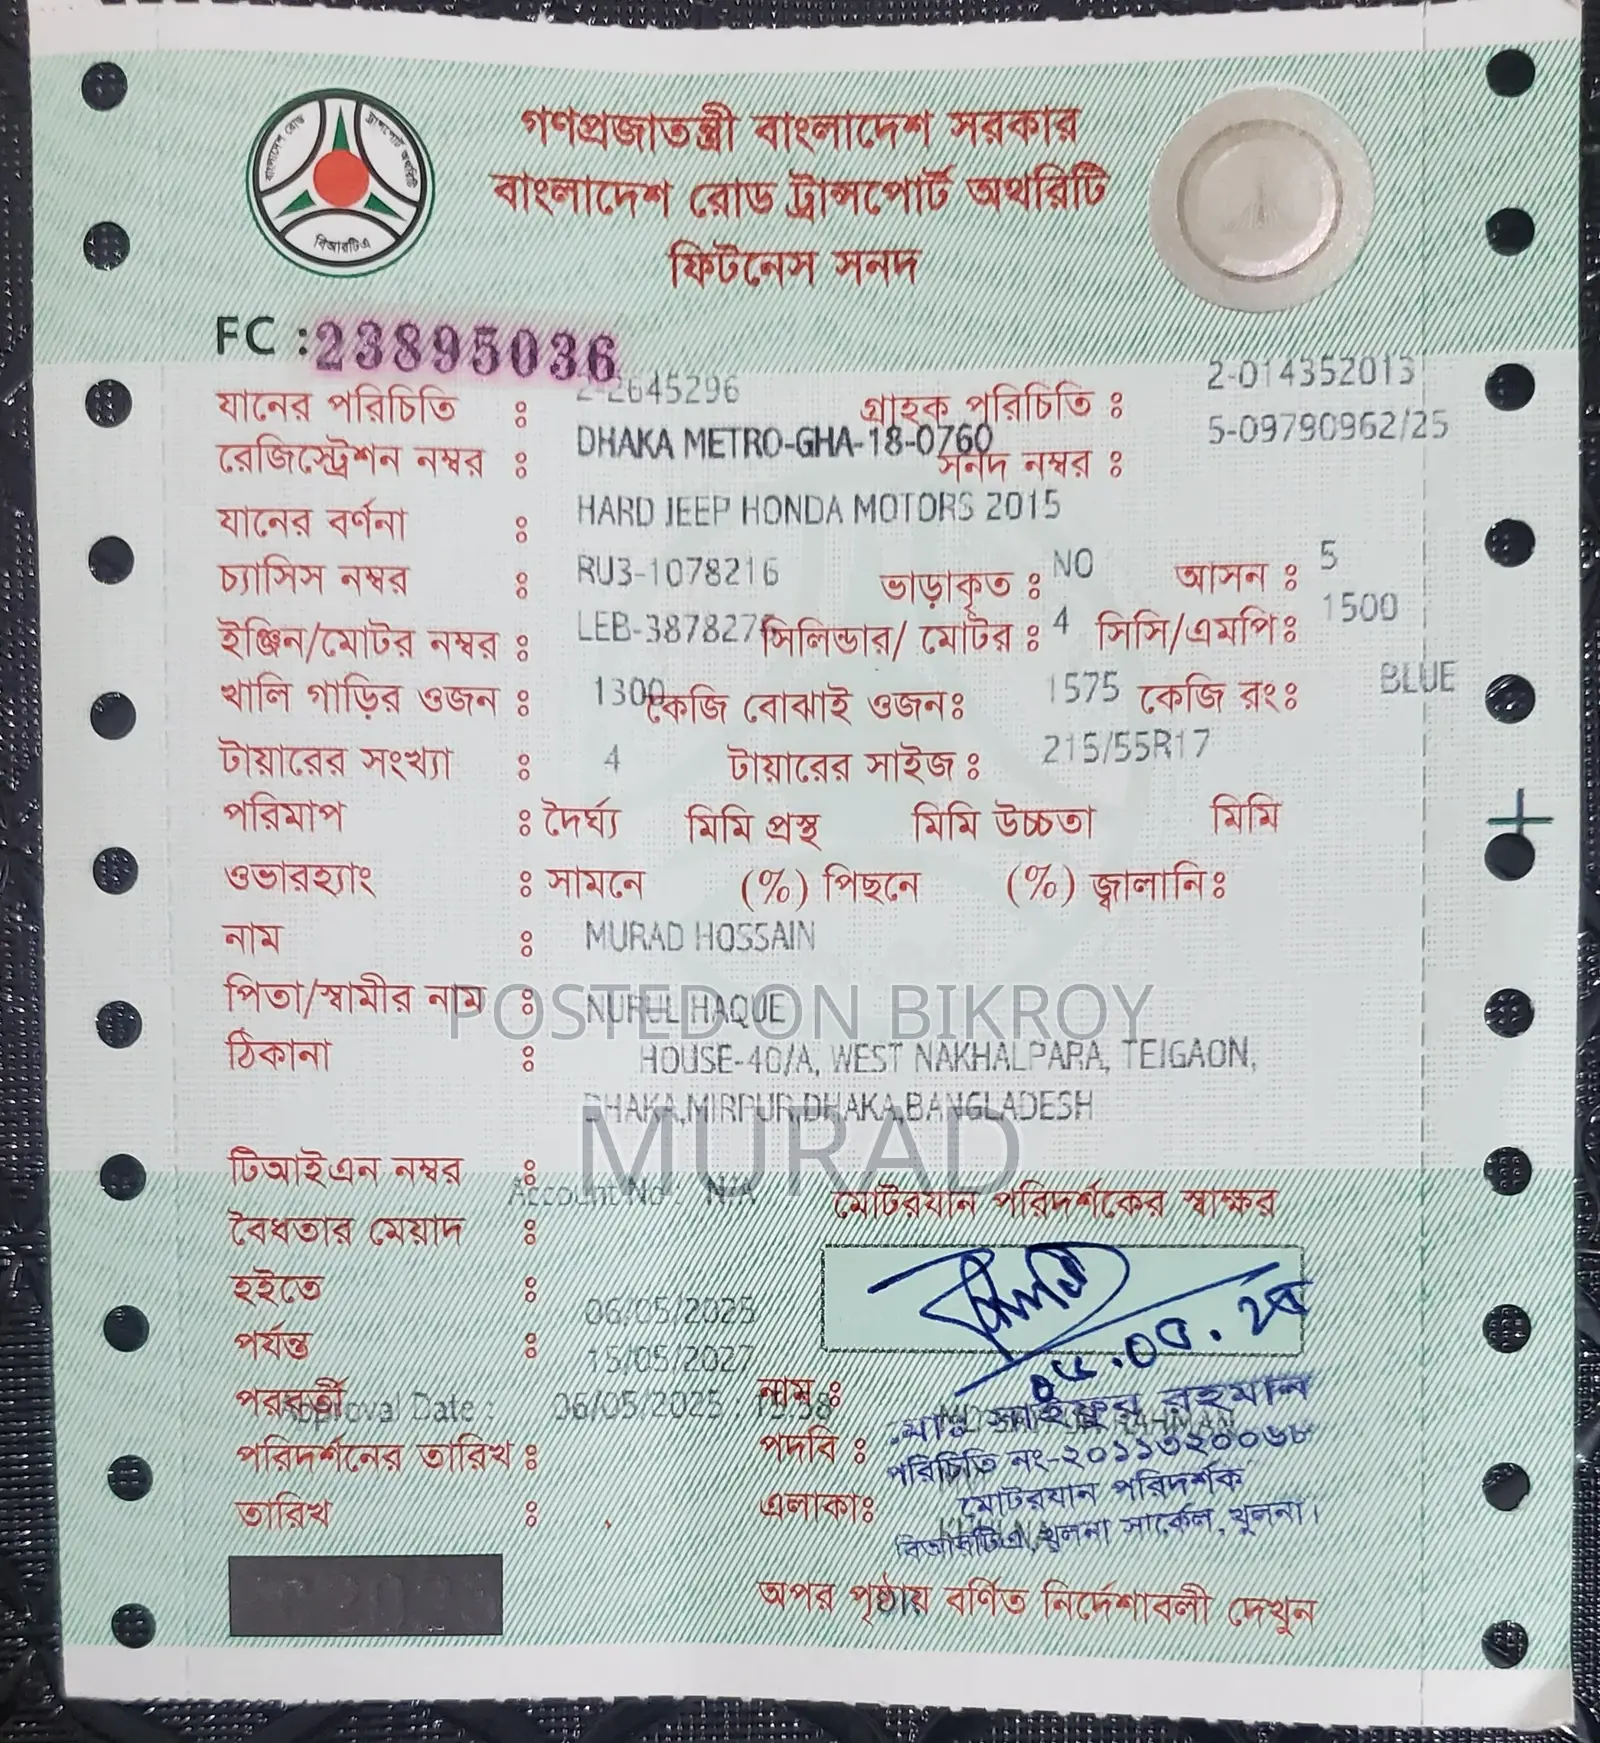 বাংলাদেশ রোড ট্রান্সপোর্ট অথরিটি
বিআরটিএ
গণপ্রজাতন্ত্রী বাংলাদেশ সরকার
বাংলাদেশ রোড ট্রান্সপোর্ট অথরিটি
ফিটনেস সনদ
FC : 23895036
যানের পরিচিতি : 2-2645296 গ্রাহক পরিচিতি : 2-014352013
রেজিস্ট্রেশন নম্বর : DHAKA METRO-GHA-18-0760 সনদ নম্বর : 5-09790962/25
যানের বর্ণনা : HARD JEEP HONDA MOTORS 2015
চ্যাসিস নম্বর : RU3-1078216 ভাড়াকৃত : NO আসন : 5
ইঞ্জিন/মোটর নম্বর : সিলিন্ডার/ মোটর : 4 সিসি/এমপি: 1500
খালি গাড়ির ওজন : 1300 কেজি বোঝাই ওজন: 1575 কেজি রং: BLUE
টায়ারের সংখ্যা : 4 টায়ারের সাইজ : 215/55R17
পরিমাপ : দৈর্ঘ্য মিমি প্রস্থ মিমি উচ্চতা মিমি
ওভারহ্যাং : সামনে (%) পিছনে (%) জ্বালানি:
নাম : MURAD HOSSAIN
পিতা/স্বামীর নাম : NURUL HAQUE
POSTED ON BIKROY
ঠিকানা : HOUSE-40/A, WEST NAKHALPARA, TEJGAON,
DHAKA,MIRPUR,DHAKA,BANGLADESH
MURAD
টিআইএন নম্বর :
Account No : N/A মোটরযান পরিদর্শকের স্বাক্ষর
বৈধতার মেয়াদ :
হইতে : 06/05/2025
পর্যন্ত : 15/05/2027
পরবর্তী Approval Date : 06/05/2025 নাম : মোঃ সাইফুর রহমান
পরিদর্শনের তারিখ : পদবি : পরিচিতি নং-২০১১৩২০০৬৮
মোটরযান পরিদর্শক
তারিখ : এলাকা: বিআরটিএ, খুলনা সার্কেল, খুলনা।
অপর পৃষ্ঠায় বর্ণিত নির্দেশাবলী দেখুন